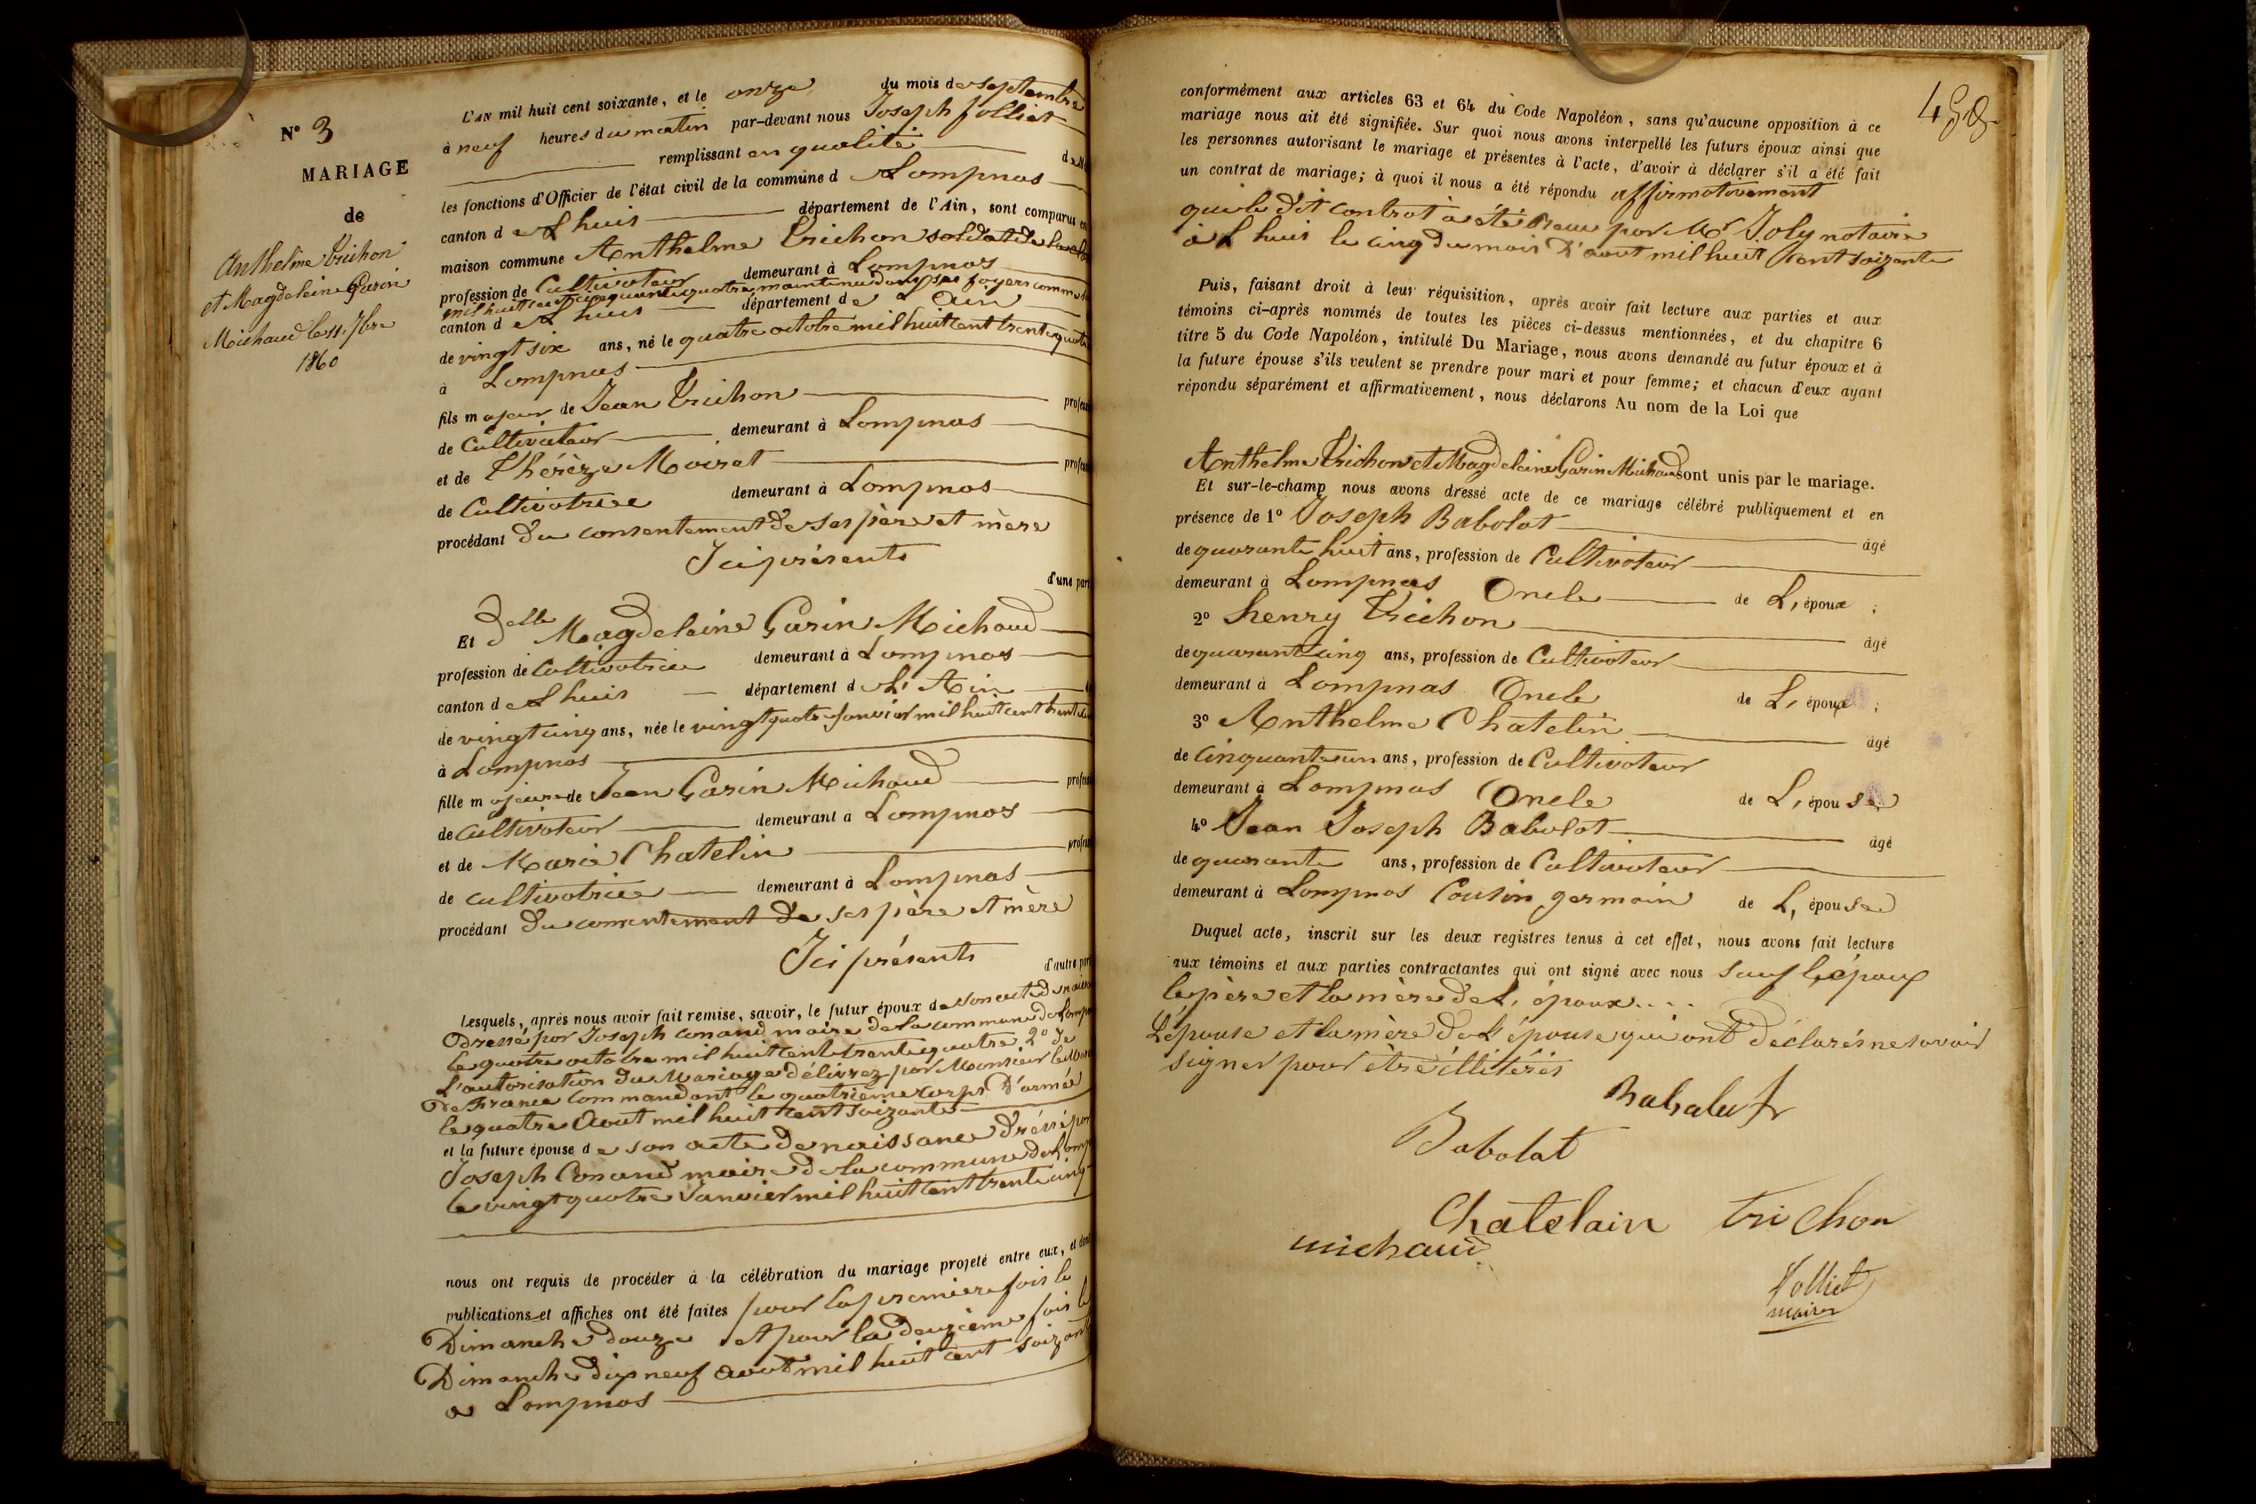 N° 3
MARIAGE
de
Anthelme Trichon
et Magdeleine Garin
Michaud le 11 7bre
1860
L'AN mil huit cent soixante, et le onze du mois de Septembre
à neuf heures du matin par-devant nous Joseph Jolliet
remplissant en qualité de
les fonctions d'Officier de l'état civil de la commune de Lompnas
canton de Lhuis département de l'Ain, sont comparus en
maison commune Anthelme Trichon soldat de la
profession de Cultivateur demeurant à Lompnas
mil huit cent cinquante quatre maintenu dans ses foyers comme
canton de Lhuis département de L'Ain
de vingt six ans, né le quatre octobre mil huit cent trente quatre
à Lompnas
fils majeur de Jean Trichon
de Cultivateur demeurant à Lompnas
et de Thérèze Moiret
de Cultivatrice demeurant à Lompnas
procédant du consentement de ses père et mère
Ici présents
d'une part
Et delle Magdeleine Garin Michaud
profession de Cultivatrice demeurant à Lompnas
canton de Lhuis département de L'Ain
de vingt cinq ans, née le vingt quatre Janvier mil huit cent trente
à Lompnas
fille majeure de Jean Garin Michaud
de Cultivateur demeurant à Lompnas
et de Marie Chatelin
de cultivatrice demeurant à Lompnas
procédant du consentement de ses père et mère
Ici présents
d'autre part
Lesquels, après nous avoir fait remise, savoir, le futur époux de son acte de
Dressé par Joseph Conand maire de la commune de
le quatre octobre mil huit cent trente quatre 2° de
L'autorisation du Mariage délivrez par Monsieur le
De France Commandant le quatrième corps D'armée
le quatre Aout mil huit cent soizante
et la future épouse de son acte de naissance dréssé par
Joseph Conand maire de la commune de
le vingt quatre Janvier mil huit cent trente cinq
nous ont requis de procéder à la célébration du mariage projeté entre eux, et dont
publications et affiches ont été faites pour la première fois le
Dimanche douze et pour la deuxième fois le
Dimanche dix neuf aout mil huit cent soizante
a Lompnas
conformément aux articles 63 et 64 du Code Napoléon, sans qu'aucune opposition à ce
mariage nous ait été signifiée. Sur quoi nous avons interpellé les futurs époux ainsi que
les personnes autorisant le mariage et présentes à l'acte, d'avoir à déclarer s'il a été fait
un contrat de mariage; à quoi il nous a été répondu affirmativement
que le dit contrat à été Reçu par Mr Joly notaire
à Lhuis le cinq du mois D'aout mil huit cent soizante
Puis, faisant droit à leur réquisition, après avoir fait lecture aux parties et aux
témoins ci-après nommés de toutes les pièces ci-dessus mentionnées, et du chapitre 6
titre 5 du Code Napoléon, intitulé Du Mariage, nous avons demandé au futur époux et à
la future épouse s'ils veulent se prendre pour mari et pour femme; et chacun d'eux ayant
répondu séparément et affirmativement, nous déclarons Au nom de la Loi que
Anthelme Trichon et Magdeleine Garin Michaud sont unis par le mariage.
Et sur-le-champ nous avons dressé acte de ce mariage célébré publiquement et en
présence de 1° Joseph Babolat âgé
de quarante huit ans, profession de Cultivateur
demeurant à Lompnas Oncle de L, époux ;
2° henry Trichon âgé
de quarante cinq ans, profession de Cultivateur
demeurant à Lompnas Oncle de L, époux ;
3° Anthelme Chatelin âgé
de Cinquante un ans, profession de Cultivateur
demeurant à Lompnas Oncle de L, épouse
4° Jean Joseph Babolat âgé
de quarante ans, profession de Cultivateur
demeurant à Lompnas Cousin germain de L, épouse
Duquel acte, inscrit sur les deux registres tenus à cet effet, nous avons fait lecture
aux témoins et aux parties contractantes qui ont signé avec nous Sauf l'époux
le père et la mère de L, époux....
L'épouse et la mère de L'épouse qui ont déclarés ne savoir
signer pour être illitérés
Babolat
Chatelain trichon
michaud
Jolliet
maire